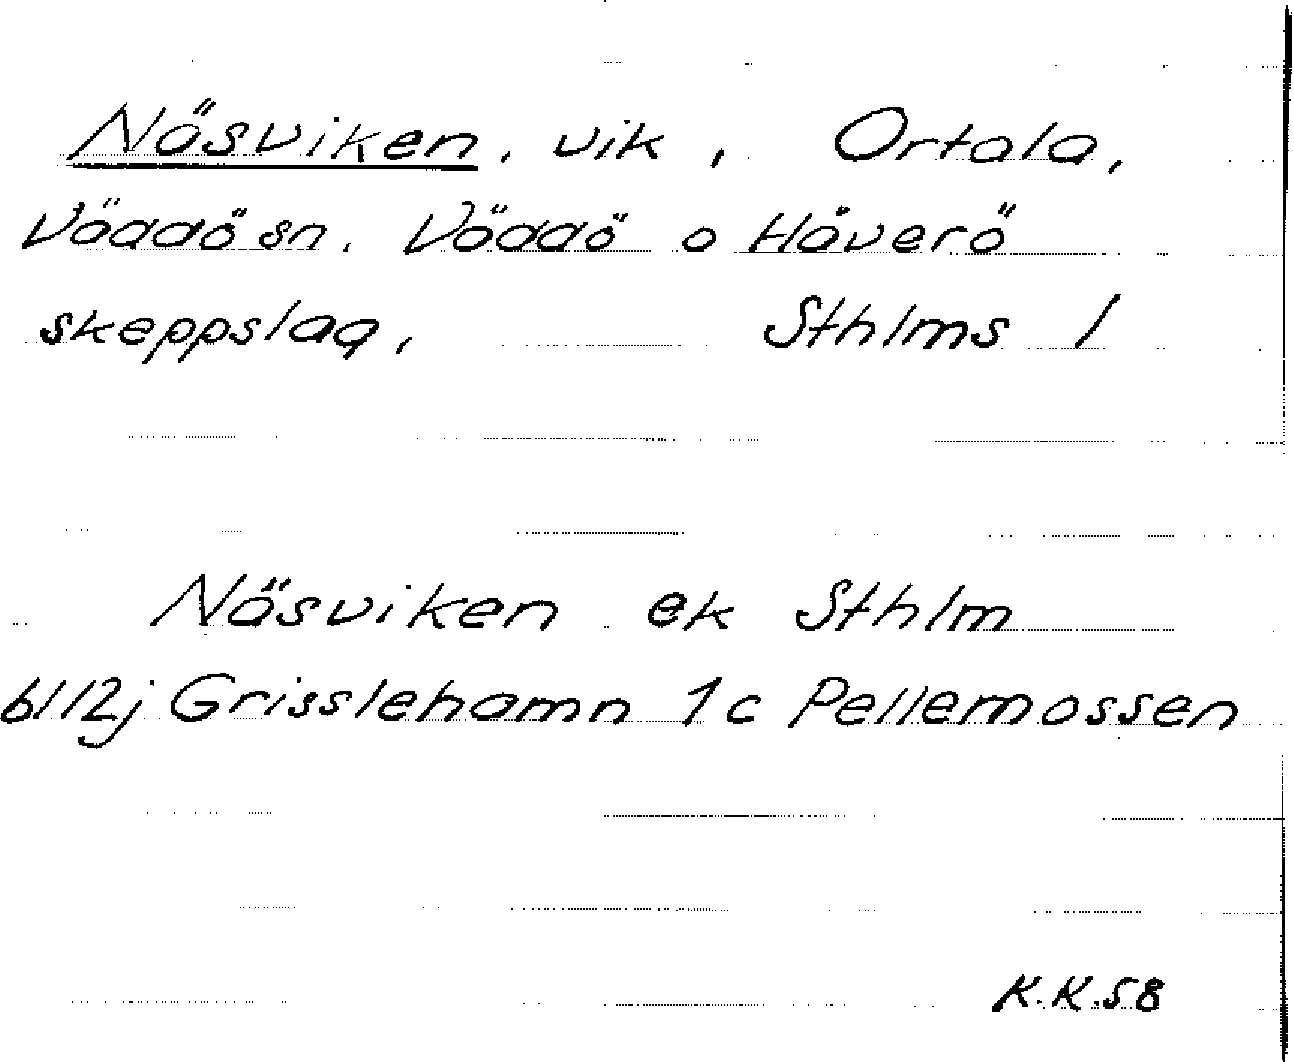 Näsviken, vik, Ortala,
Väddö sn. Väddö o Häverö
skeppslag, Sthlms l
Näsviken ek Sthlm
bl12j Grisslehamn 1c Pellemossen
K.K.58